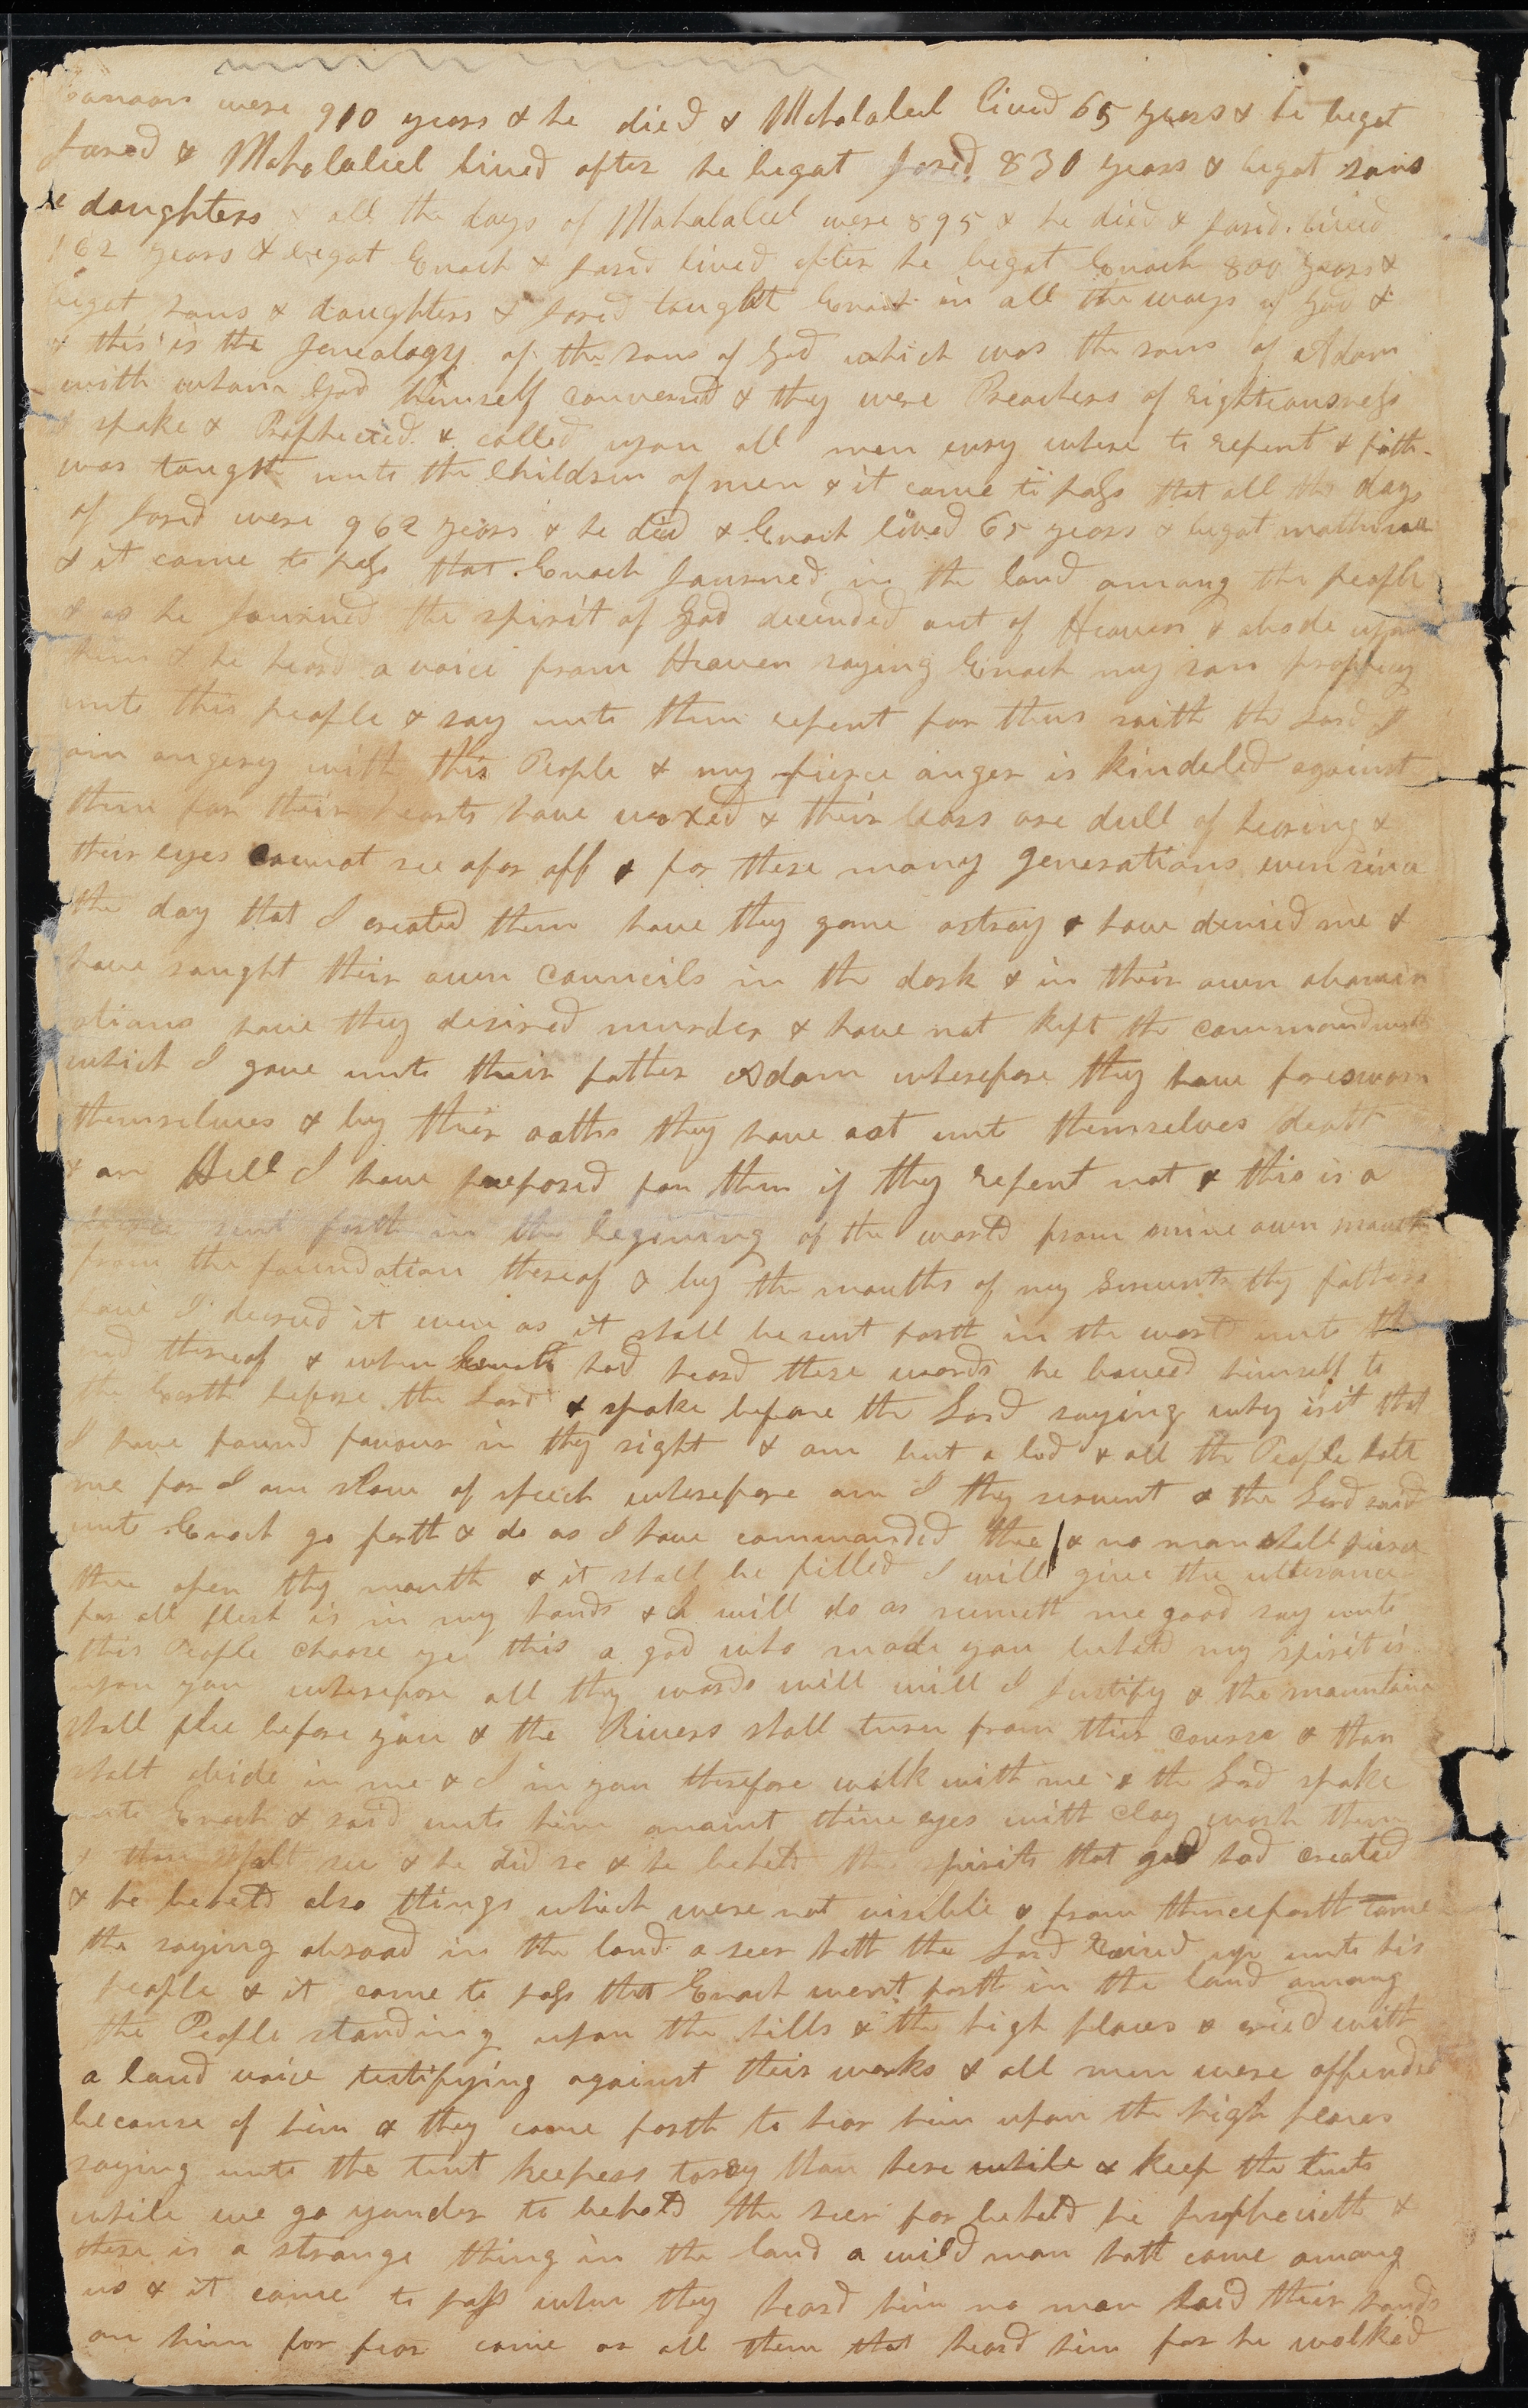 Canaan were 910 years & he died & Mahalaleel lived 65 years & he begat
Jared & Mahalaleel lived after he begat Jared 830 years & begat sons
& daughters & all the days of Mahalaleel were 895 & he died & Jared lived
162 years & begat Enoch & Jared lived after he begat Enoch 800 years &
begat sons & daughters & Jared taught Enoch in all the ways of God &
& this is the genealogy of the sons of God which was the sons of Adam
with whom God himself conversed & they were Preachers of righteousness
& spake & Prophecied & called upon all men evry where to repent & faith
was taught unto the Children of men & it came to pass that all the days
of Jared were 962 years & he died & Enoch lived 65 years & begat
& it came to pass that Enoch Journed in the land among the people
& as he Journed the spirit of God decended out of Heaven & abode upon
him & he heard a voice from Heaven saying Enoch my son prophecy
unto this people & say unto them repent for thus saith the Lord I
am angery with this People & my fierce anger is kindeled against
them for their hearts have waxed & their ears are dull of hearing &
their eyes cannot see afar off & for these many generations even since
the day that I created them have they gone astray & have denied me &
have saught their own councils in the dark & in their own abomin
ations have they desired murder & have not kept the commandments
which I gave unto their father Adam wherefore they have foresworn
themselves & by their oaths they have eat unto themselves death
& an Hell I have prepared for them if they repent not & this is a
decree sent forth in the begining of the world from mine own mouth
from the foundation thereof & by the mouths of my servents thy fathers
have I decreed it even as it shall be sent forth in the world unto the
end thereof & when Enoch had heard these words he bowed himself to
the Earth before the Lord & spake before the Lord saying why is it that
I have found favour in thy sight & am but a lad & all the People hate
me for I am slow of speech wherefore am I thy servent & the Lord said
unto Enoch go forth & do as I have commanded thee & no man shall pierce
thee open thy mouth & it shall be filled I will give the utterance
for all flesh is in my hands & I will do as seemeth me good say unto
this People choose ye this a god who made you behold my spirit is
upon you wherefore all thy words will will I Justify & the mountains
shall flee before you & the Rivers shall turn from their course & thou
shalt abide in me & I in you therefore walk with me & the Lord spake
unto Enoch & said unto him anoint thine eyes with clay wash them
& thou shalt see & he did so & he beheld the spirits that god had created
& he beheld also things which were not visible & from thenceforth came
the saying abroad in the land a seer hath the Lord raised up unto his
people & it came to pass that Enoch went forth in the land among
the People standing upon the hills & the high places & cried with
a loud voice testifying against their works & all men were offended
because of him & they came forth to hear him upon the high places
saying unto the tent keepers tarry thou here while & keep the tents
while we go yonder to behold the seer for behold he prophecieth &
there is a strange thing in the land a wild man hath come among
us & it came to pass when they heard him no man laid their hands
on him for fear came on all them that heard him for he walked